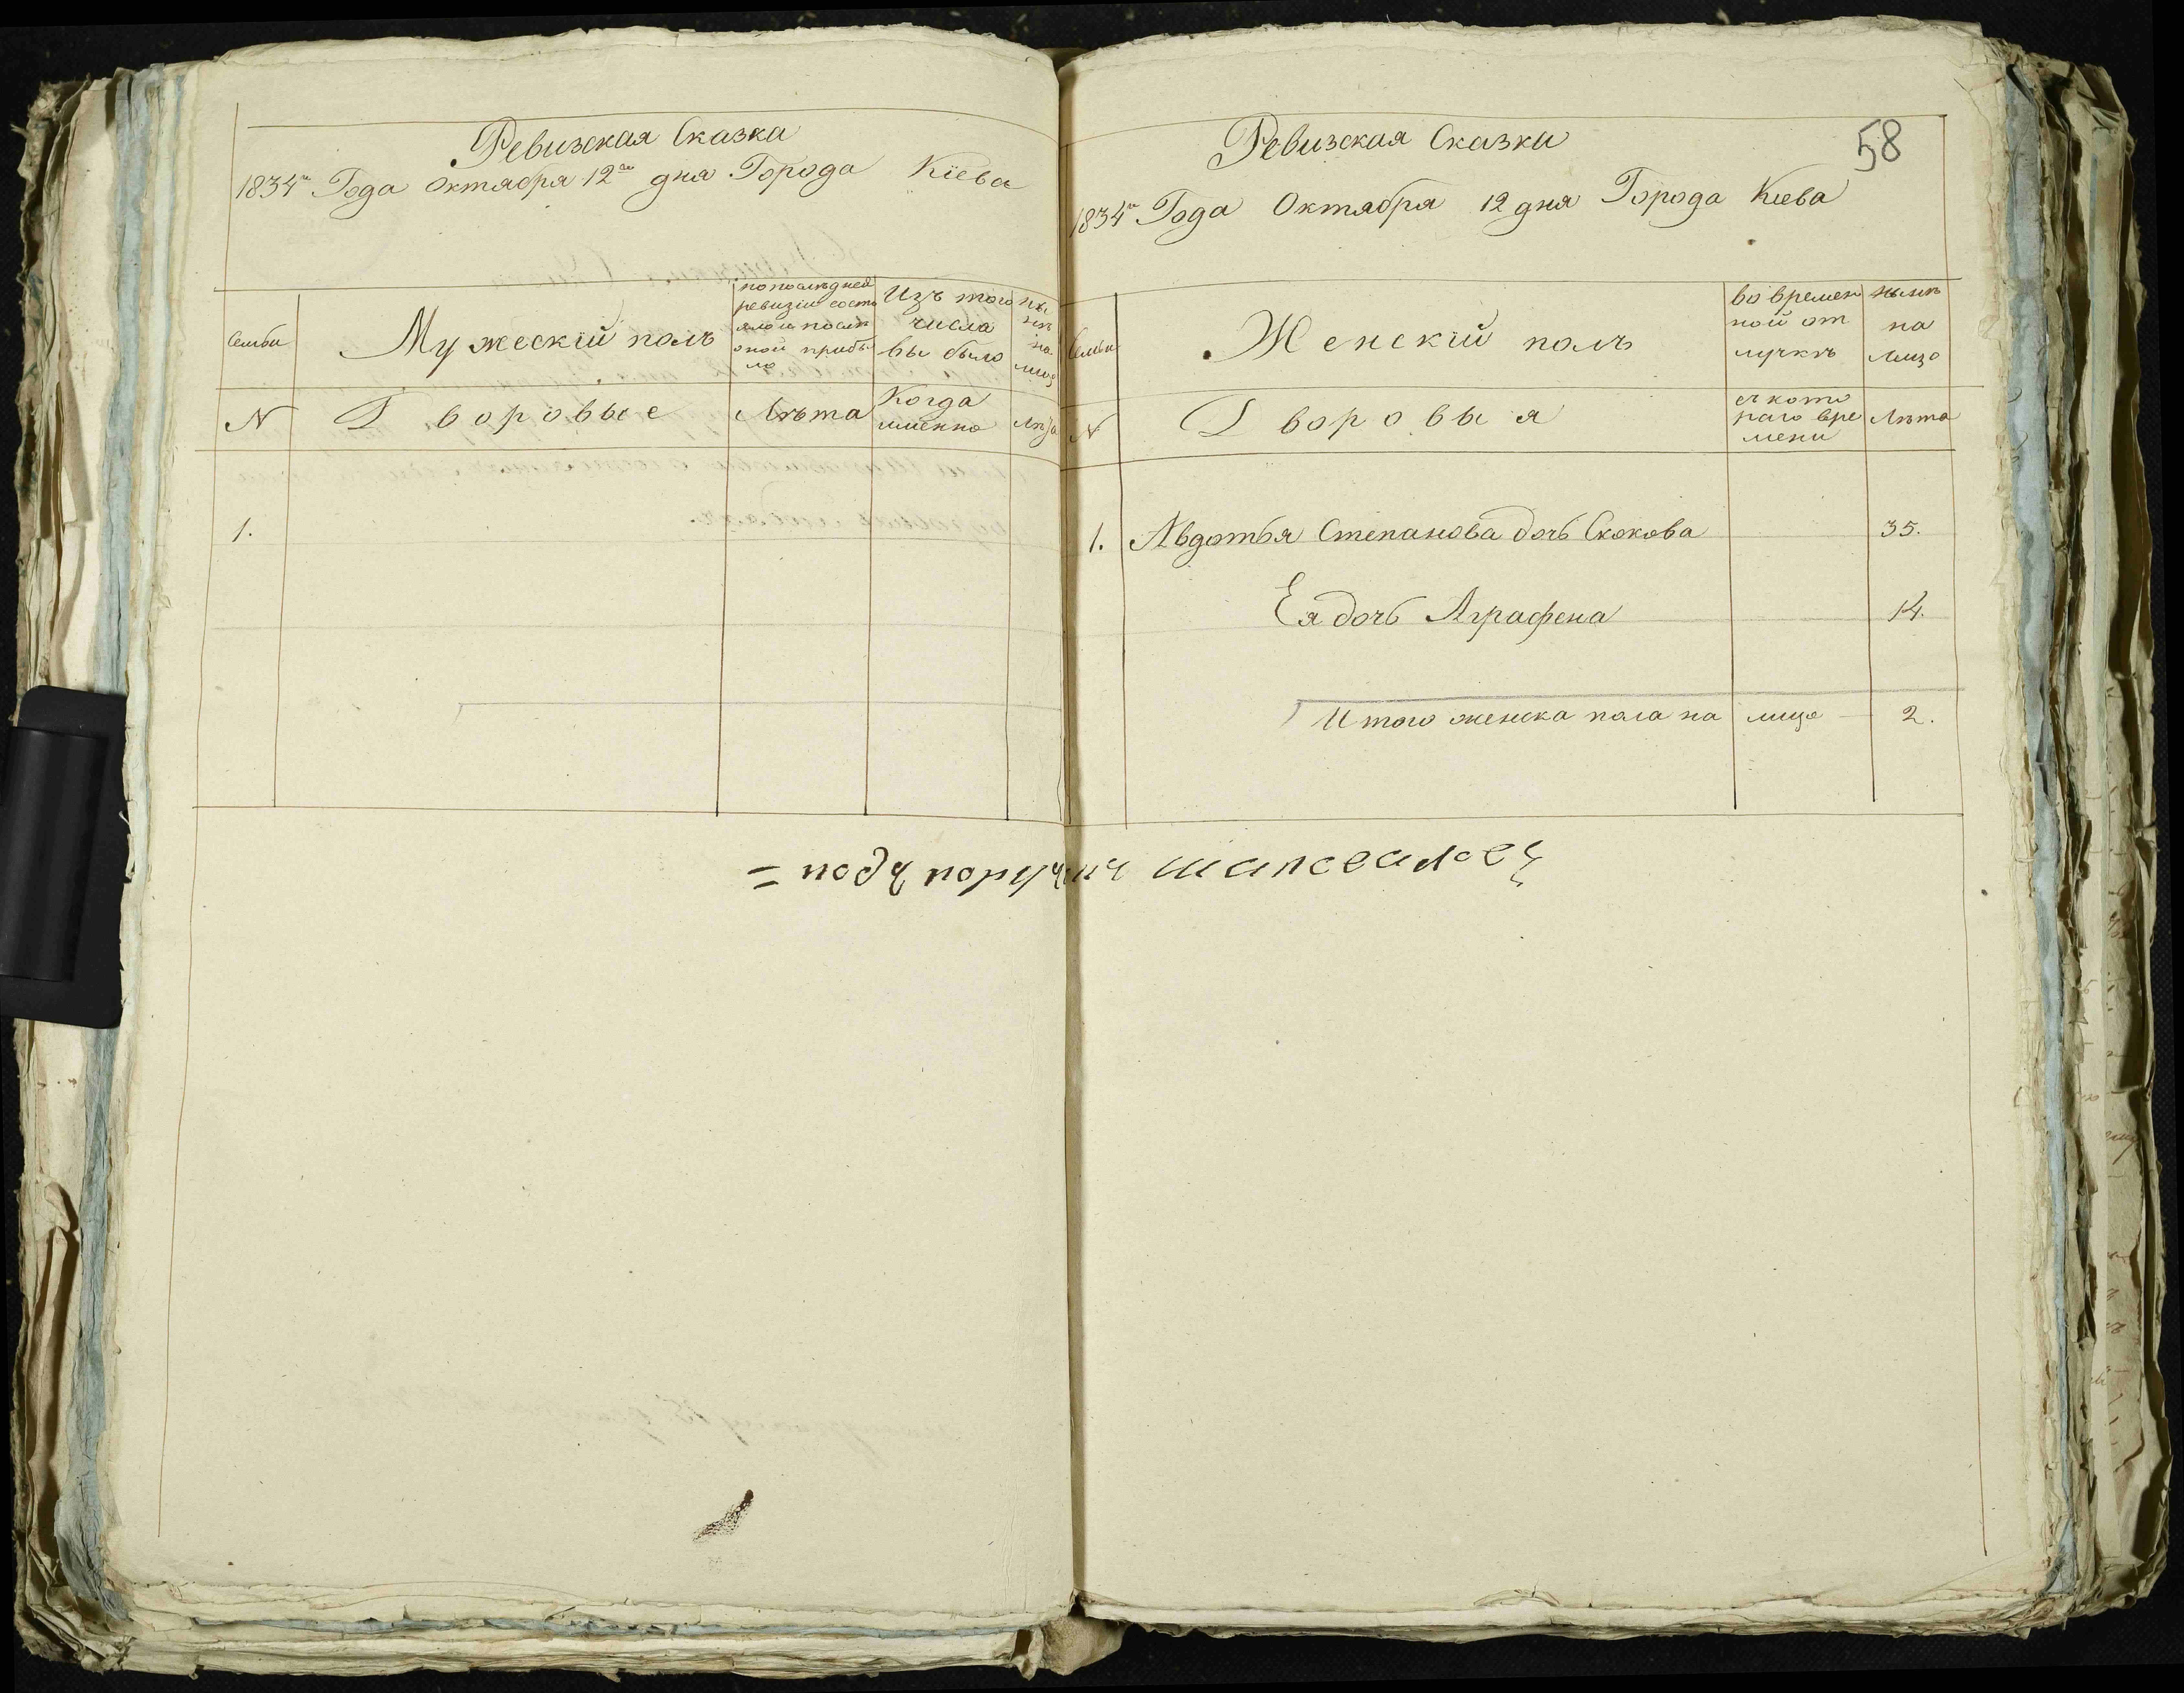 Ревизская Сказка
1834го Года Октября 12го дня Города Кіева
Семьи
Мужескій полъ
по последней
ревизіи состо
яло и посли
оной прибы
ло
Изъ того
числа
выбыло
ны
нѣ
на
лицо
N
Дворовые
Лѣта
Когда
имѣнно
Лѣта
1.
58
Ревизская Сказка
1834го Года Октября 12 дня Города Кіева
Семьи
Женскій полъ
во времен
ной от
лучкѣ
нынѣ
на
лицо
N
Дворовыя
съ кото
раго вре
мени
Лѣта
1. Авдотья Степанова дочь Скокова 35.
Ея дочь Аграфена 14.
Итого женска пола на лицо — 2.
= подъ поручикъ Шаповаловъ